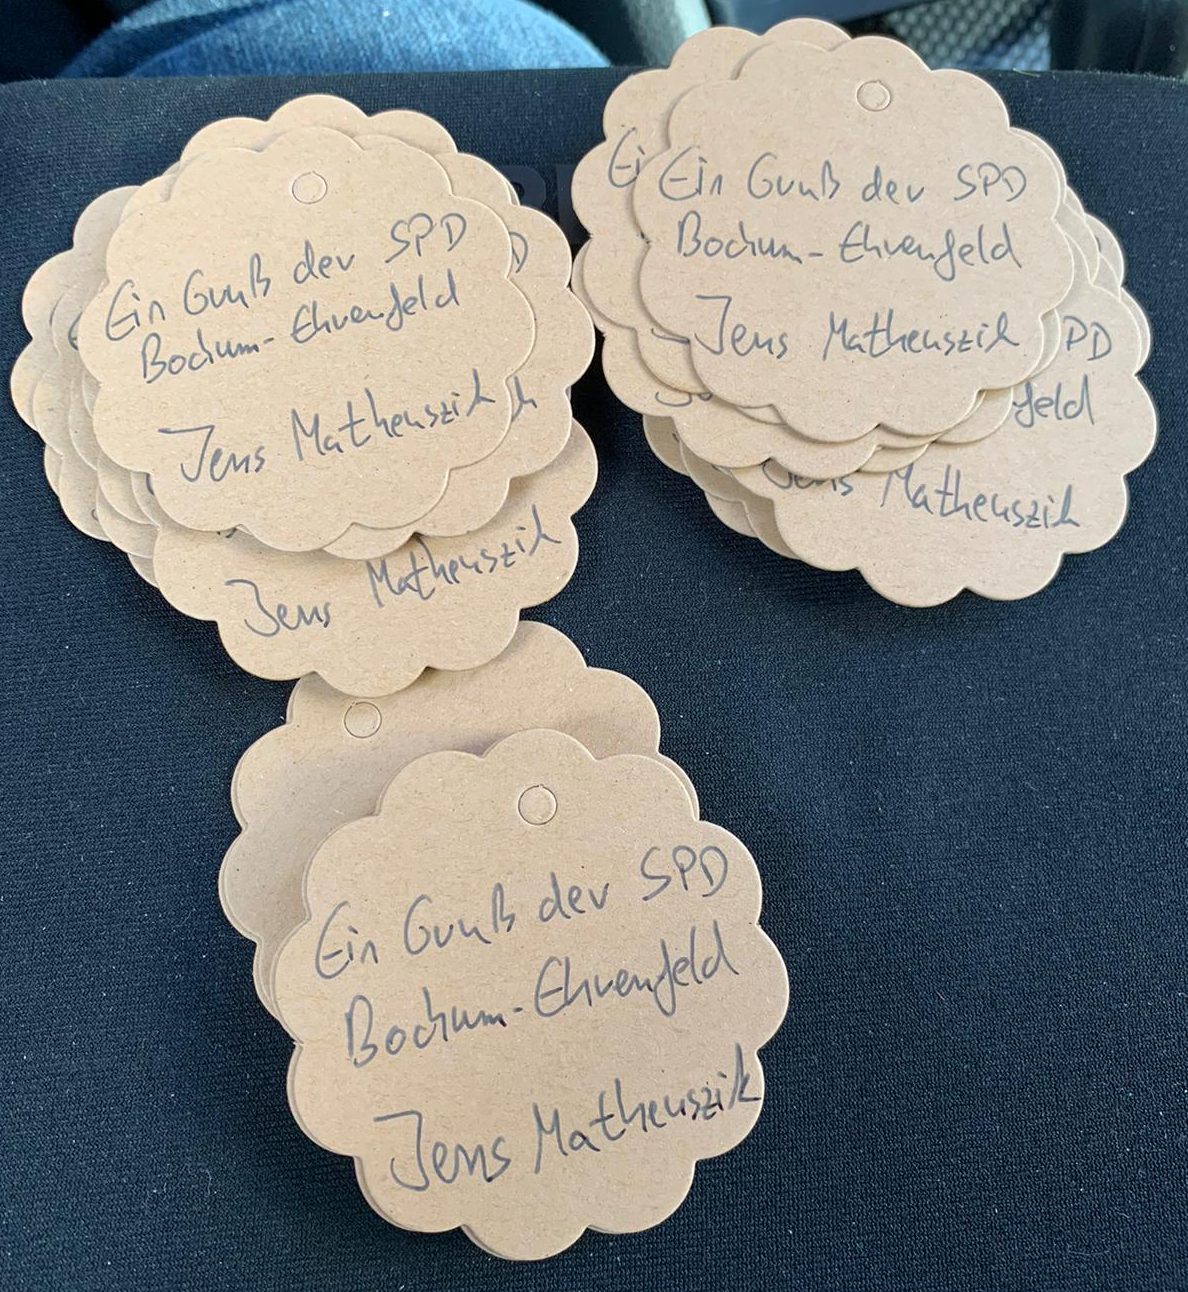 Ein Gruß der SPD
Bochum-Ehrenfeld
Jens Matheuszik
Jens Matheuszik
Ei
Ein Gruß der SPD
Bochum-Ehrenfeld
Jens Matheuszik
PD
feld
Jens Matheuszik
Ein Gruß der SPD
Bochum-Ehrenfeld
Jens Matheuszik